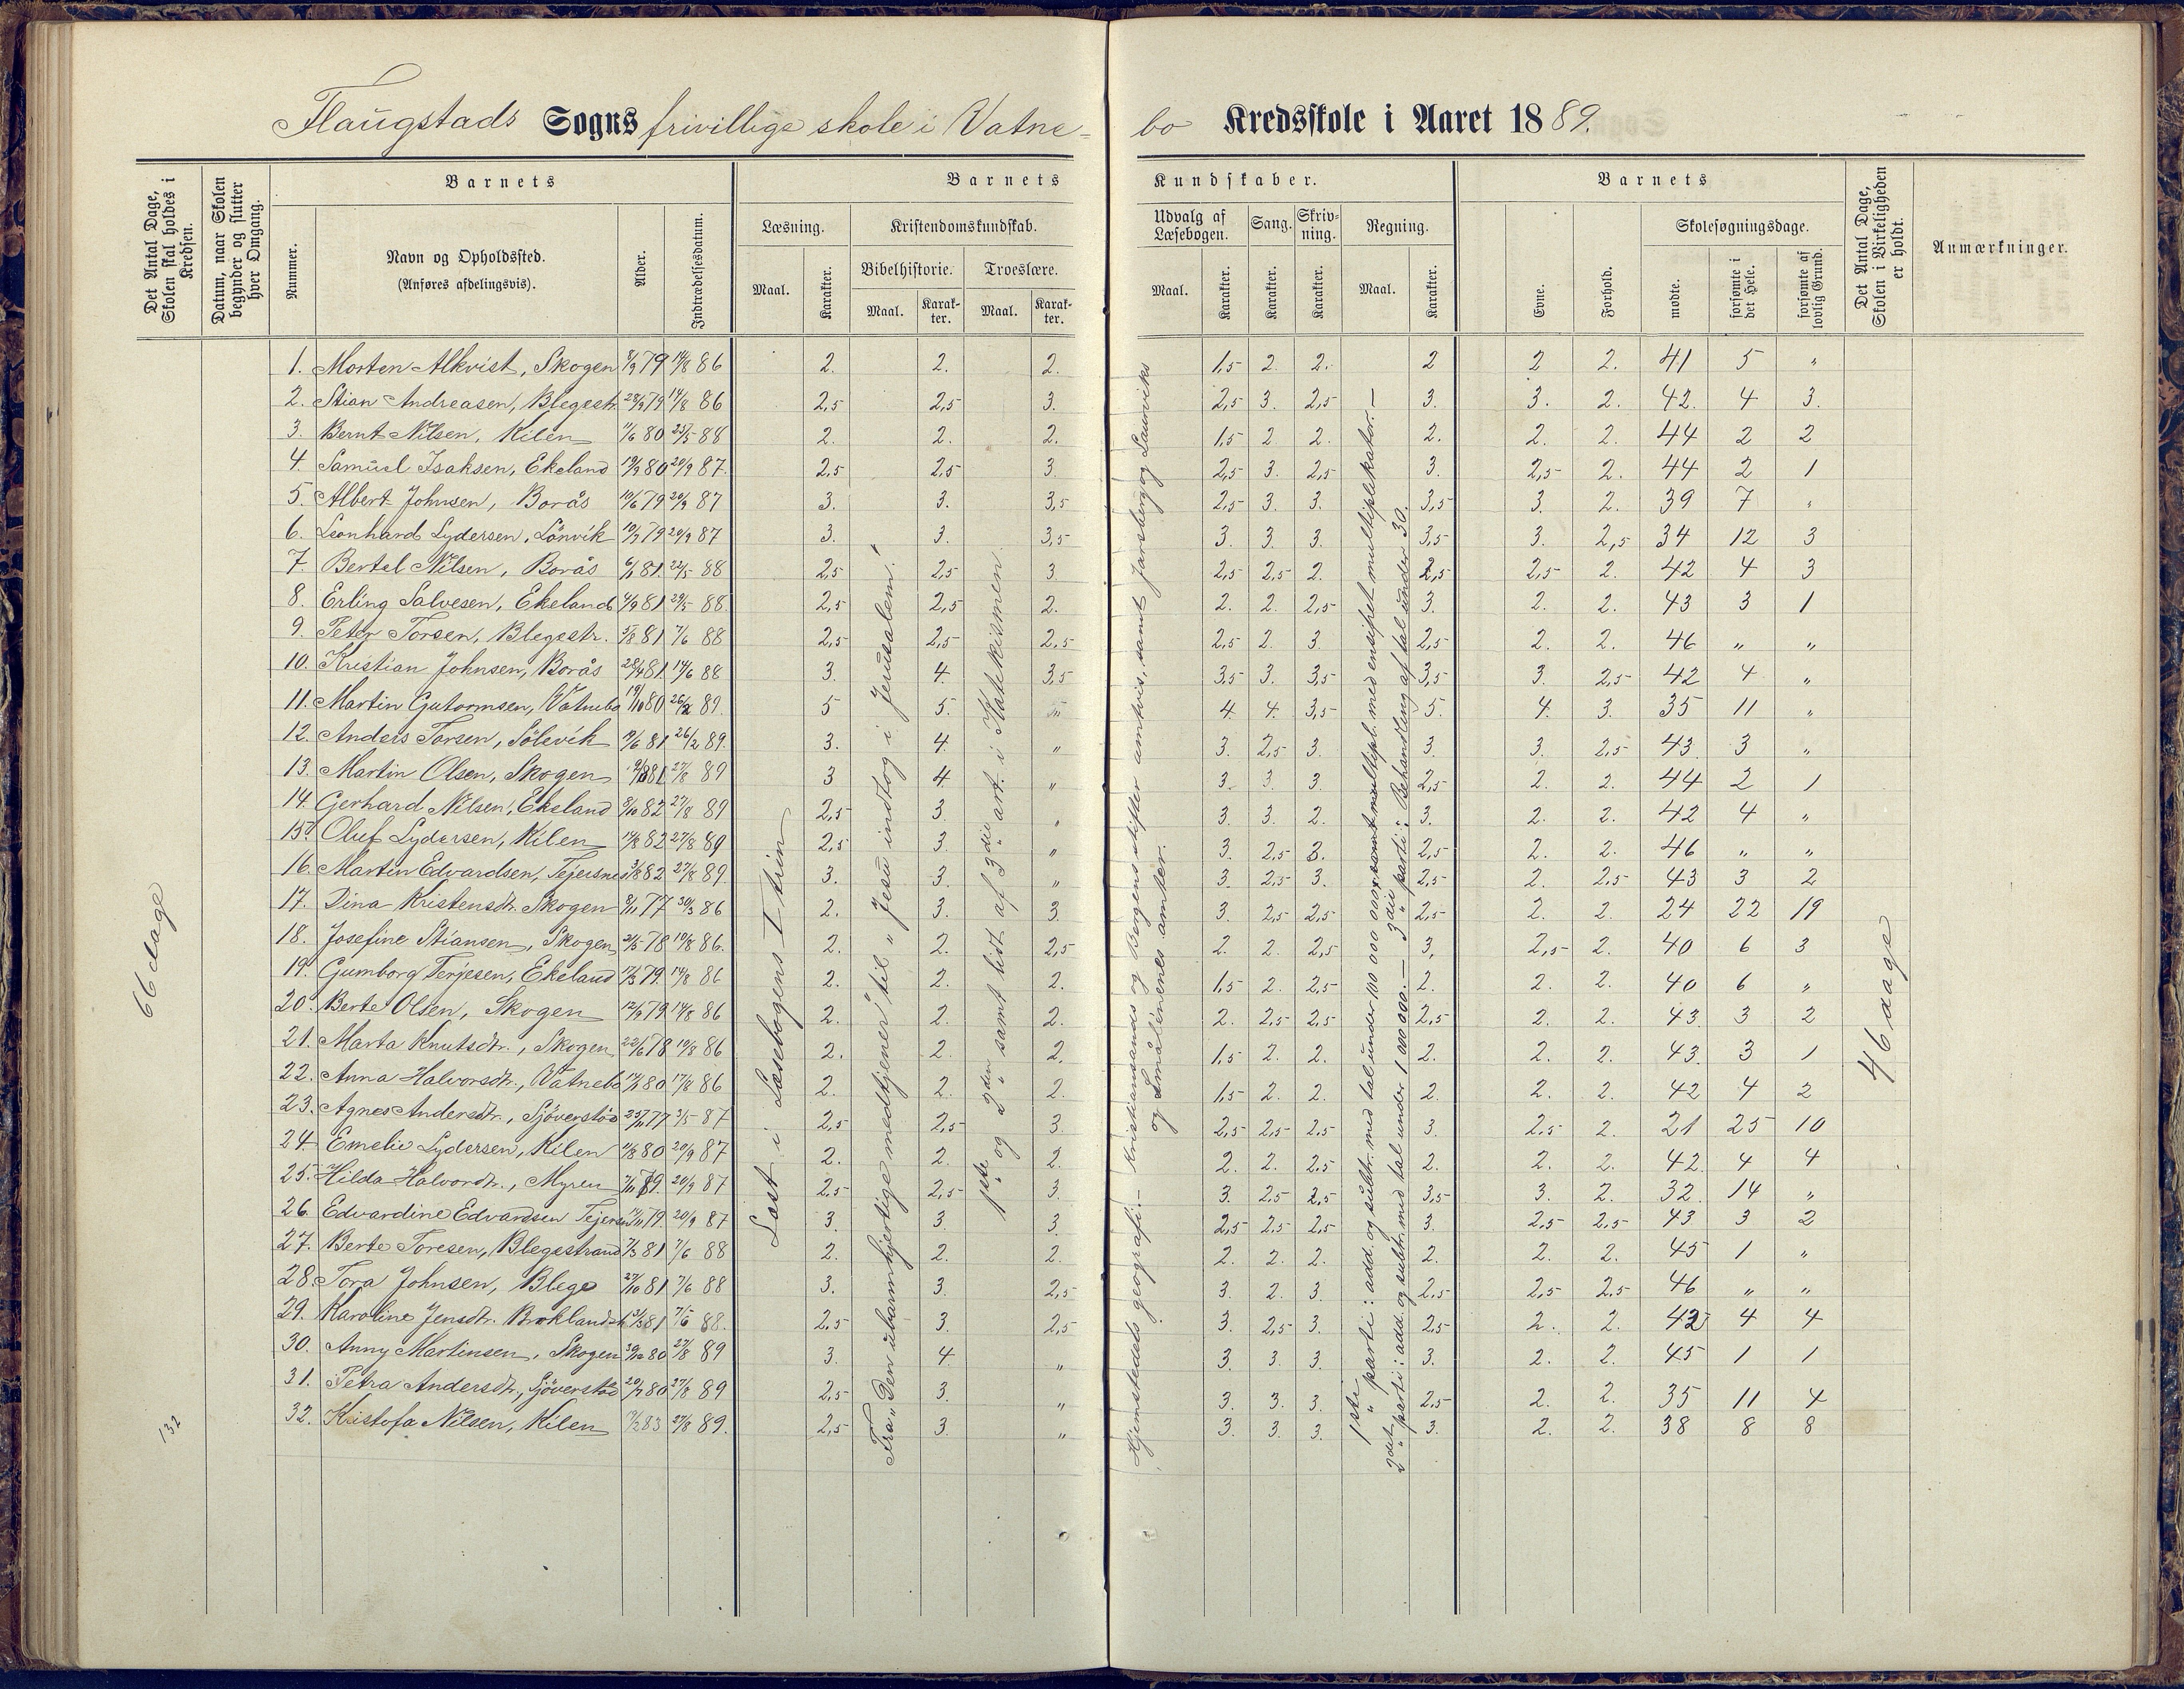 Flaugstads Sogns frivillige skole i Vatne-bo Kredsskole i Aaret 1889.
Det Antal Dage, Skolen skal holdes i Kredsen.
Datum, naar Skolen begynder og slutter hver Omgang.
Barnets
Nummer.
Navn og Opholdssted.
(Anføres afdelingsvis).
Alder.
Indtrædelsesdatum.
Barnets Kundskaber.
Læsning. Kristendomskundskab. Udvalg af Læsebogen. Sang. Skrivning. Regning.
Bibelhistorie. Troeslære.
Maal. Karakter. Maal. Karakter. Maal. Karakter. Maal. Karakter. Karakter. Karakter. Maal. Karakter.
Barnets
Evne. Forhold. Skolesøgningsdage.
mødte. forsømte i det Hele. forsømte af lovlig Grund.
Det Antal Dage, Skolen i Virkeligheden er holdt.
Anmærkninger.
1. Morten Alkvist, Skogen 8/9 79 14/8 86 2. 2. 2. 1,5 2. 2. 2 2 2. 41 5 "
2. Stian Andreasen, Blegestr. 28/9 79 14/8 86 2,5 2,5 3. 2,5 3. 2,5 3. 3. 2. 42. 4 3.
3. Bernt Nilsen, Kilen 11/6 80 25/5 88 2. 2. 2. 1,5 2 2. 2. 2. 2. 44 2 2
4. Samuel Isaksen, Ekeland 19/9 80 20/9 87. 2,5 2,5 3. 2,5 3. 2,5 3. 2,5 2. 44 2 1
5. Albert Johnsen, Borås 10/6 79 20/9 87 3. 3. 3,5 2,5 3. 3. 3,5 3. 2. 39 7 "
6. Leonhard Lydersen, Lönvik 10/7 79 20/9 87 3. 3. 3,5 3. 3. 3. 3,5 3. 2,5 34 12 3
7. Bertel Nilsen, Borås 6/1 81. 22/5 88 2,5 2,5 3. 2,5 2,5 2. 2,5 2,5 2. 42 4 3
8. Erling Salvesen, Ekeland 4/9 81 29/5 88. 2,5 2,5 2. 2. 2. 2,5 3. 2. 2. 43 3 1
9. Peter Torsen, Blegestr. 5/8 81 7/6 88 2,5 2,5 2,5 2,5 2. 3. 2,5 2. 2. 46 " "
10. Kristian Johnsen, Borås 28/4 81. 14/6 88 3. 4. 3,5 3,5 3. 3,5 3,5 3. 2,5 42 4 "
11. Martin Gutormsen, Vatnebo 19/10 80 26/2 89. 5 5. 4. 4. 3,5 5. 4. 3. 35 11 "
12. Anders Torsen, Sölevik 9/6 81 26/2 89. 3. 4. " 3. 2,5 3. 3. 3. 2,5 43. 3 "
13. Martin Olsen, Skogen 81 27/8 89 3 4. " 3. 3. 3. 2,5 2. 2. 44 2 1
14. Gerhard Nilsen, Ekeland 8/10 82 27/8 89 2,5 3. " 3. 3. 2. 3. 2. 2. 42 4 "
15. Oluf Lydersen, Kilen 14/8 82 27/8 89 2,5 3. " 3. 2,5 3. 2,5 2. 2. 46 " "
16. Martin Edvardsen, Tejersnes 3/8 82 27/8 89. 3. 3. " 3. 2,5 3. 2,5 2. 2,5 43 3 2
17. Dina Kristensdtr. Skogen 8/11 77 30/3 86 2. 3. 3. 3. 2,5 2,5 2,5 2. 2. 24 22 19
18. Josefine Stiansen, Skogen 2/5 78 10/8 86. 2. 2. 2,5 2. 2. 2,5 3, 2,5 2. 40 6 3
19. Gumborg Terjesen, Ekeland 17/3 79. 14/8 86 2. 2. 2. 1,5 2. 2,5 2. 2. 2. 40 6 "
20. Berte Olsen, Skogen 12/9 79 14/8 86 2. 2. 2. 2. 2,5 2,5 2,5 2. 2. 43. 3 2
21. Marta Knutsdtr., Skogen 22/6 78 10/8 86 2. 2. 2. 1,5 2. 2. 2. 2. 2. 43. 3 1
22. Anna Halvorsdtr., Vatnebo 80 17/8 86 2. 2. 2. 1,5 2. 2. 2. 2. 2. 42 4 2
23. Agnes Andersdtr., Sjöverstöo 77 3/5 87 2,5 2,5 3. 2,5 2,5 2,5 3. 2,5 2. 21 25 10
24. Emelie Lydersen, Kilen 11/8 80 20/9 87 2. 2. 2. 2. 2. 2,5 2. 2. 2. 42. 4 4
25. Hilda Halvordtr., Myren 79. 20/9 87 2,5 2,5 3. 3. 2,5 2,5 3,5 3. 2. 32. 14 "
26. Edvardine Edvardsen Tejersn. 79. 20/9 87 3. 3. 3. 2,5 2,5 2,5 3. 2,5 2,5 43 3 2
27. Berte Toresen, Blegestrand 7/3 81 7/6 88 2. 2. 2. 2. 2. 2. 2. 2. 2. 45 1 "
28. Tora Johnsen, Blege 27/10 81 7/6 88 3. 3. 2,5 3. 2. 3. 2,5 2,5 2,5 46 " "
29. Karoline Jensdtr. Broklandsh. 81 7/6 88. 2,5 3. 2,5 3. 2,5 3. 2,5 2. 2. 42 4 4
30. Anny Martinsen, Skogen 80 27/8 89 3. 4 " 3. 3. 3. 3. 2. 2. 45 1 1
31. Petra Andersdtr., Sjöverstöd 20/7 80 27/8 89 2,5 3. " 3. 3. 3. 2,5 2. 2. 35 11 4
32. Kristofa Nilsen, Kilen 83 27/8 89. 2,5 3. " 3. 3. 3. 3. 2. 2. 38 8 8
66 dage
132
Læst i Læsebogens I trin
Fra „Den ubarmhjertige medtjener" til „Jesu indtog i Jerusalem."
1ste og 2den samt lidt af 3die art. i Katekismen.
Hjemstedets geografi. – Kristiansands og Bergens stifter amtvis, samt Jarlsberg og Laurviks
og Smålenenes amter.
1ste parti: add. og subtr. med tal under 100 000 samt multipl. med ensifret multiplikator. –
2det parti: add. og subtr. med tal under 1 000 000. – 3die parti: Behandling af tal under 30.
46 dage